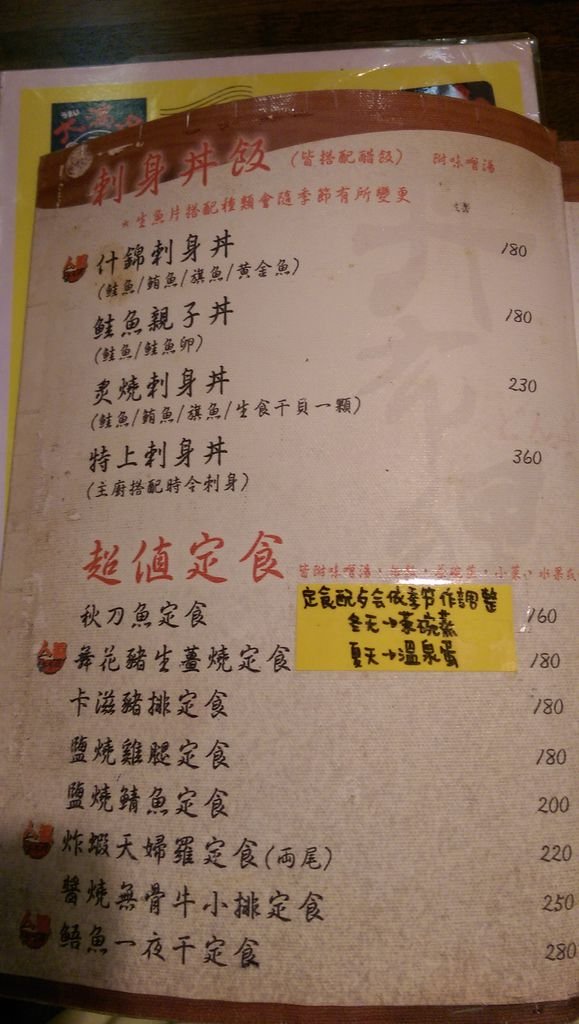 刺身丼飯 (皆搭配醋飯) 附味噌湯
*生魚片搭配種類會隨季節有所變更
什錦刺身丼 180
(鮭魚/鮪魚/旗魚/黃金魚)
鮭魚親子丼 180
(鮭魚/鮭魚卵)
炙燒刺身丼 230
(鮭魚/鮪魚/旗魚/生食干貝一顆)
特上刺身丼 360
(主廚搭配時令刺身)
超值定食 皆附味噌湯、白飯、茶碗蒸、小菜、水果
定食配勺会依季节作調整
冬天→茶碗蒸
夏天→溫泉蛋
秋刀魚定食 160
舞花豬生薑燒定食 180
卡滋豬排定食 180
鹽燒雞腿定食 180
鹽燒鯖魚定食 200
炸蝦天婦羅定食(両尾) 220
醬燒無骨牛小排定食 250
鯃魚一夜干定食 280